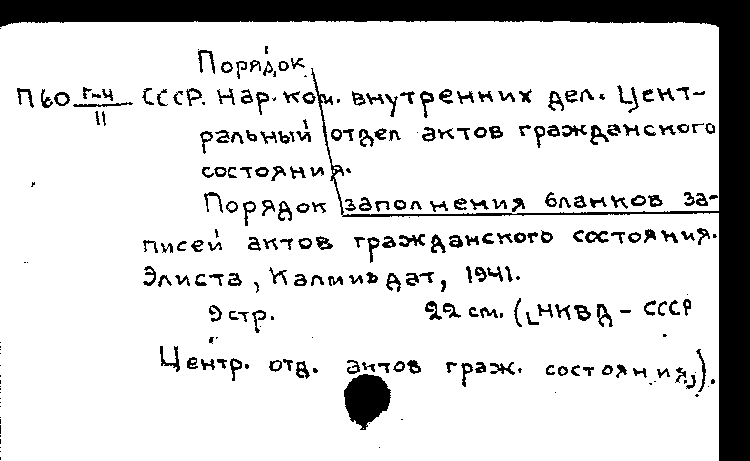 Порядок
П60 Г-4/II СССР. Нар. ком. внутренних дел. Цент-
ральный отдел актов гражданского
состояния.
Порядок заполнения бланков за-
писей актов гражданского состояния.
Элиста, Калмиздат, 1941.
9 стр. 22 см. (НКВД - СССР
Центр. отд. актов граж. состояния).